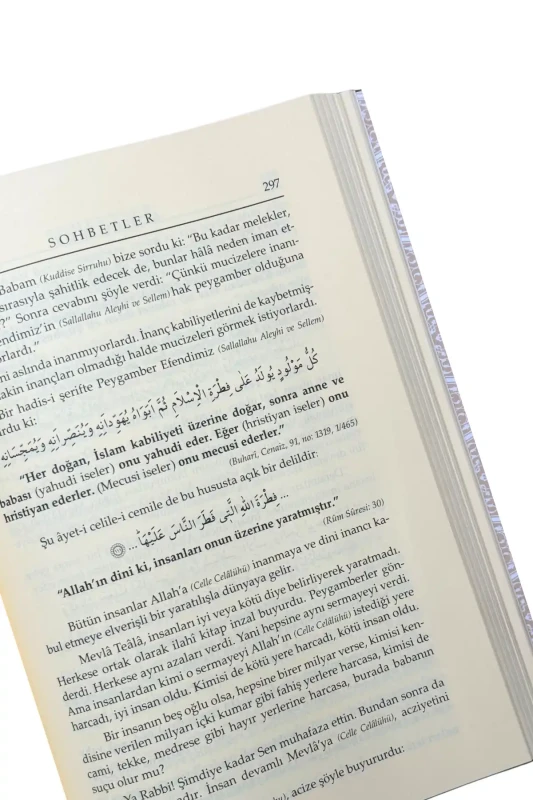 297
SOHBETLER
Babam (Kuddise Sirruhu) bize sordu ki: "Bu kadar melekler,
sırasıyla şahitlik edecek de, bunlar hâlâ neden iman et-
?" Sonra cevabını şöyle verdi: "Çünkü mucizelere inanı-
endimiz'in (Sallallahu Aleyhi ve Sellem) hak peygamber olduğuna
orlardı."
ni aslında inanmıyorlardı. İnanç kabiliyetlerini de kaybetmiş-
akin inançları olmadığı halde mucizeleri görmek istiyorlardı.
Bir hadis-i şerifte Peygamber Efendimiz (Sallallahu Aleyhi ve Sellem)
urdu ki:
كُلُّ مَوْلُودٍ يُولَدُ عَلَى فِطْرَةِ الْإِسْلَامِ ثُمَّ أَبَوَاهُ يُهَوِّدَانِهِ وَيُنَصِّرَانِهِ وَيُمَجِّسَانِهِ
"Her doğan, İslam kabiliyeti üzerine doğar, sonra anne ve
babası (yahudi iseler) onu yahudi eder. Eğer (hristiyan iseler) onu
hristiyan ederler. (Mecusi iseler) onu mecusi ederler."
(Buharî, Cenaiz, 91, no: 1319, 1/465)
Şu âyet-i celile-i cemile de bu hususta açık bir delildir:
... فِطْرَةَ اللّٰهِ الَّتِي فَطَرَ النَّاسَ عَلَيْهَاۜ ...
"Allah'ın dini ki, insanları onun üzerine yaratmıştır."
(Rûm Sûresi: 30)
Bütün insanlar Allah'a (Celle Celâlühü) inanmaya ve dini inancı ka-
bul etmeye elverişli bir yaratılışla dünyaya gelir.
Mevlâ Teâlâ, insanları iyi veya kötü diye belirliyerek yaratmadı.
Herkese ortak olarak ilahî kitap inzal buyurdu. Peygamberler gön-
derdi. Herkese aynı azaları verdi. Yani hepsine aynı sermayeyi verdi.
Ama insanlardan kimi o sermayeyi Allah'ın (Celle Celâlühü) istediği yere
harcadı, iyi insan oldu. Kimisi de kötü yere harcadı, kötü insan oldu.
Bir insanın beş oğlu olsa, hepsine birer milyar verse, kimisi ken-
disine verilen milyarı içki kumar gibi fahiş yerlere harcasa, kimisi de
cami, tekke, medrese gibi hayır yerlerine harcasa, burada babanın
suçu olur mu?
Ya Rabbi! Şimdiye kadar Sen muhafaza ettin. Bundan sonra da
dır. İnsan devamlı Mevlâ'ya (Celle Celâlühü), acziyetini
, acize şöyle buyururdu: